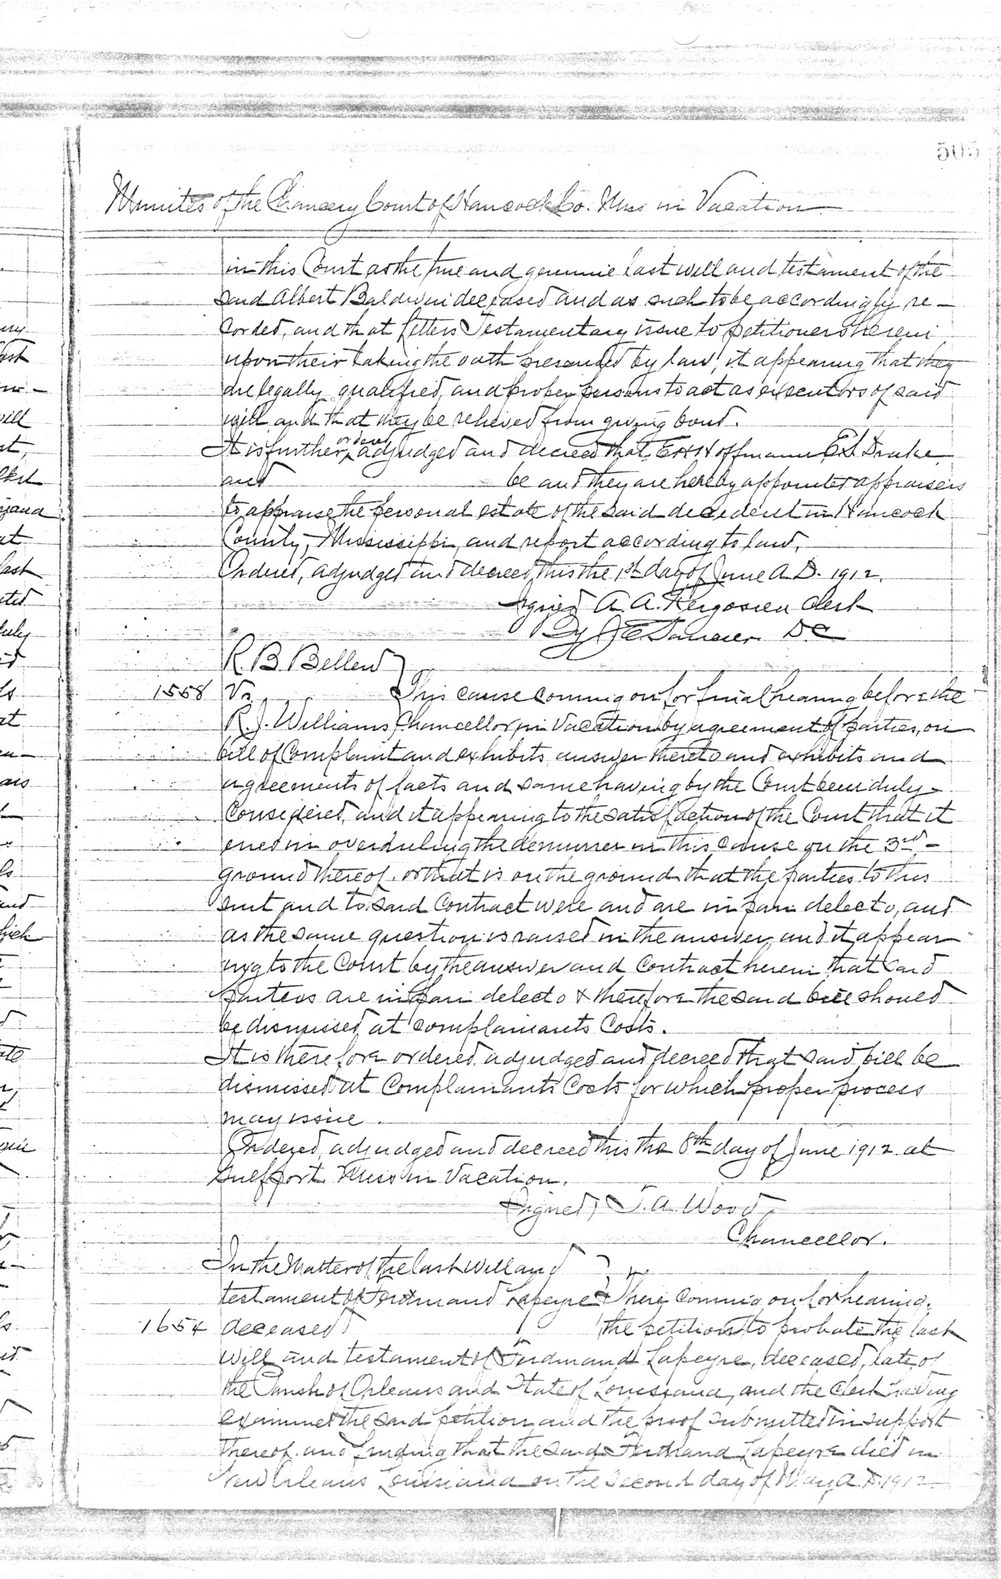 505
Minutes of the Chancery Court of Hancock Co. Miss in Vacation
in this Court as the true and genuine last will and testament of the
said Albert Baldwin deceased and as such to be accordingly re-
corded, and that letters Testamentary issue to petitioners herein
upon their taking the oath presented by law, it appearing that they
are legally qualified, and proper persons to act as executors of said
will and that they be relieved from giving bond.
It is further ordered adjudged and decreed that E H Hoffmann E S Drake
and be and they are hereby appointed appraisers
to appraise the personal estate of the said decedent in Hancock
County, Mississippi, and report according to law.
Ordered, adjudged and decreed, this the 1st day of June A.D. 1912.
Signed A. A. Kergosien Clerk
By D C
R. B. Bellew
1558 Vs This cause coming on for final hearing before the
R J. Williams Chancellor in Vacation by agreement of parties, on
bill of Complaint and exhibits answer thereto and exhibits and
agreements of facts and same having by the Court been duly
considered, and it appearing to the satisfaction of the Court that it
erred in overruling the demurrer in this cause on the 3rd -
ground thereof, or that is on the ground that the parties to this
suit and to said Contract were and are in pari delecto, and
as the same question is raised in the answer, and it appear-
ing to the Court by the answer and contract herein that said
parties are in pari delecto & therefore the said bill should
be dismissed at complainants Costs.
It is therefore ordered adjudged and decreed that said bill be
dismissed at Complainants Costs for which proper process
may issue.
Ordered, adjudged and decreed this the 8th day of June 1912 at
Gulfport Miss in Vacation.
Signed, T. A. Wood
Chancellor.
In the Matter of the last Will and
testament of Ferdinand Lapeyre There coming on for hearing,
1654 deceased the petition to probate the last
will and testament of Ferdinand Lapeyre, deceased, late of
the Parish of Orleans and State of Louisiana, and the Clerk having
examined the said petition and the proof submitted in support
thereof and finding that the said Ferdinand Lapeyre died in
New Orleans Louisiana on the second day of May A.D. 1912